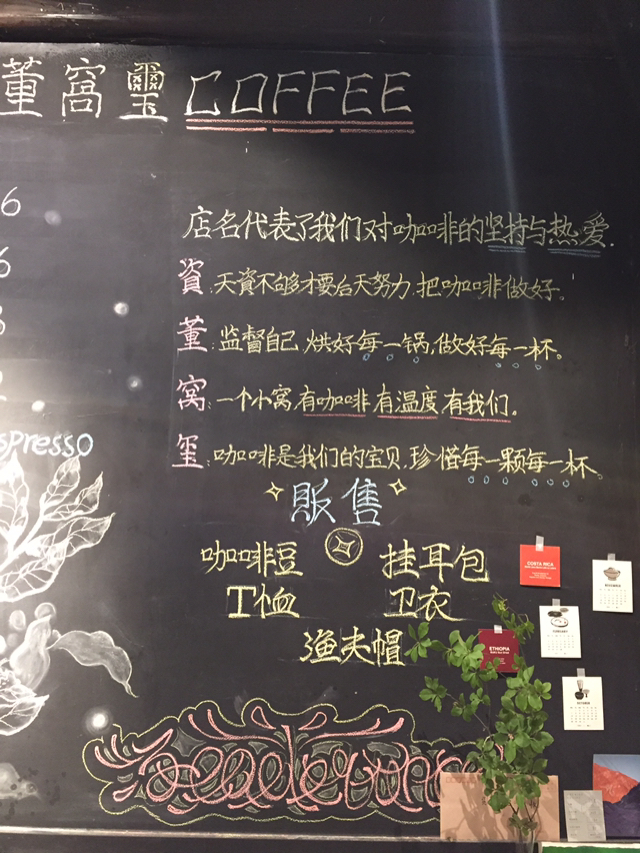 董窩璽 COFFEE
6
店名代表了我们对咖啡的坚持与热爱.
6
資:天資不够才要后天努力.把咖啡做好。
董:监督自己.烘好每一锅,做好每一杯。
窝:一个小窝.有咖啡.有温度.有我们。
玺:咖啡是我们的宝贝.珍惜每一颗每一杯。
spresso
販售
咖啡豆 挂耳包
T恤 卫衣
渔夫帽
COSTA RICA
ETHIOPIA